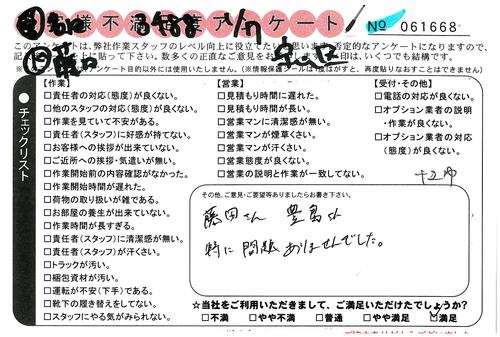 様不満度アンケート
No 061668
このアンケートは、弊社作業スタッフのレベル向上に役立てたい
否定的なアンケートになりますので、
数多くの正直なご意見をお
印は、いくつでも結構です。
アンケート目的以外には使用いたしません。(※情報保護シール
はがすと、再度貼りなおすことはできません
チェックリスト
【作業】
□責任者の対応(態度)が良くない。
□他のスタッフの対応(態度)が良くない。
□作業を見ていて不安がある。
□責任者(スタッフ)に好感が持てない。
□お客様への挨拶が出来ていない。
□ご近所への挨拶・気遣いが無い。
□作業開始前の内容確認がなかった。
□作業開始時間が遅れた。
□荷物の取り扱いが雑である。
□お部屋の養生が出来ていない。
□作業時間が長すぎる。
□責任者(スタッフ)に清潔感が無い。
□責任者(スタッフ)が汗くさい。
□トラックが汚い。
□梱包資材が汚い。
□運転が不安(下手)である。
□靴下の履き替えをしてない。
□スタッフにやる気がみられない。
【営業】
□見積もり時間に遅れた。
□見積もり時間が長い。
□営業マンに清潔感が無い。
□営業マンが煙草くさい。
□営業マンが汗くさい。
□営業態度が良くない。
□営業の説明と作業が一致してない。
【受付・その他】
□電話の対応が良くない。
□オプション業者の説明
・作業が良くない。
□オプション業者の対応
(態度)が良くない。
その他、ご意見・ご要望等ありましたらお書き下さい。
藤田さん 豊島さん
特に問題ありませんでした。
☆当社をご利用いただきまして、ご満足いただけたでしょうか?
□不満 □やや不満 □普通 □やや満足 □満足